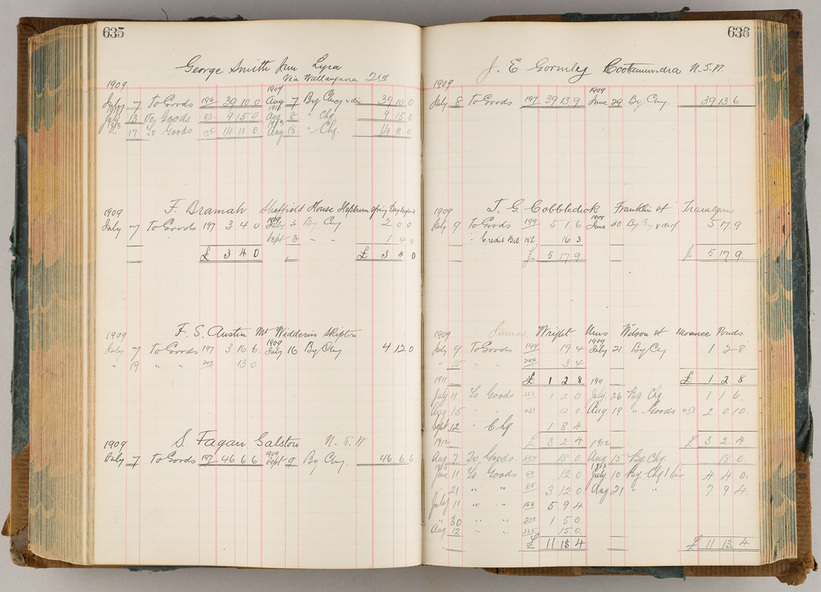 635
George Smith Jun Lyra
Via Wallangarra
1909
July 7 To Goods 39 10 0 Aug 7 By Chq 39 10 0
July 13 To Goods 9 15 0 Aug 8 " Chq 9 15 0
" 17 To Goods 14 11 0 Aug 18 " Chq 14 11 0
1909
F. Bramah Sheffield House
July 7 To Goods 197 3 4 0 By Chq 2 0 0
Sept " " 1 4 0
£ 3 4 0 £ 3 4 0
F. S. Austin Mt Widderin Skipton
1909 1909
July 7 To Goods 197 3 16 6 July 16 By Chq 4 12 0
" 19 " " 13 0
S Fagan Galston N.S.W
1909 1909
July 7 To Goods 197 46 6 6 Sept By Chq 46 6 6
636
J. E Gormley Cootamundra N.S.W.
1909 1909
July 8 To Goods 197 39 13 9 June 29 By Chq 39 13 6
T. G. Cobbledick Franklin St Traralgon
1909 1909
July 9 To Goods 199 5 1 6 June 30 5 17 9
" Credit Bal 16 3
£ 5 17 9 £ 5 17 9
James Wright Wilson St Moonee Ponds
1909 1909
July 9 To Goods 199 19 4 July 21 By Chq 1 2 8
" 15 " " 3 4
1911 £ 1 2 8 1911 £ 1 2 8
July 11 To Goods 1 2 0 July 26 By Chq 1 1 6
Aug 15 " " 12 0 Aug 19 " Goods 2 0 10
Sept 12 " Chq 1 8 4
1912 £ 3 2 4 1912 £ 3 2 4
Aug 7 To Goods 18 0 Aug 15 By Chq 18 0
June 11 To Goods 12 0 July 10 By Chq 4 4 0
21 " " 3 12 0 Aug 21 " " 7 9 4
July 11 " " 5 9 4
" 30 " " 1 5 0
Aug 12 " " 15 0
£ 11 13 4 £ 11 13 4